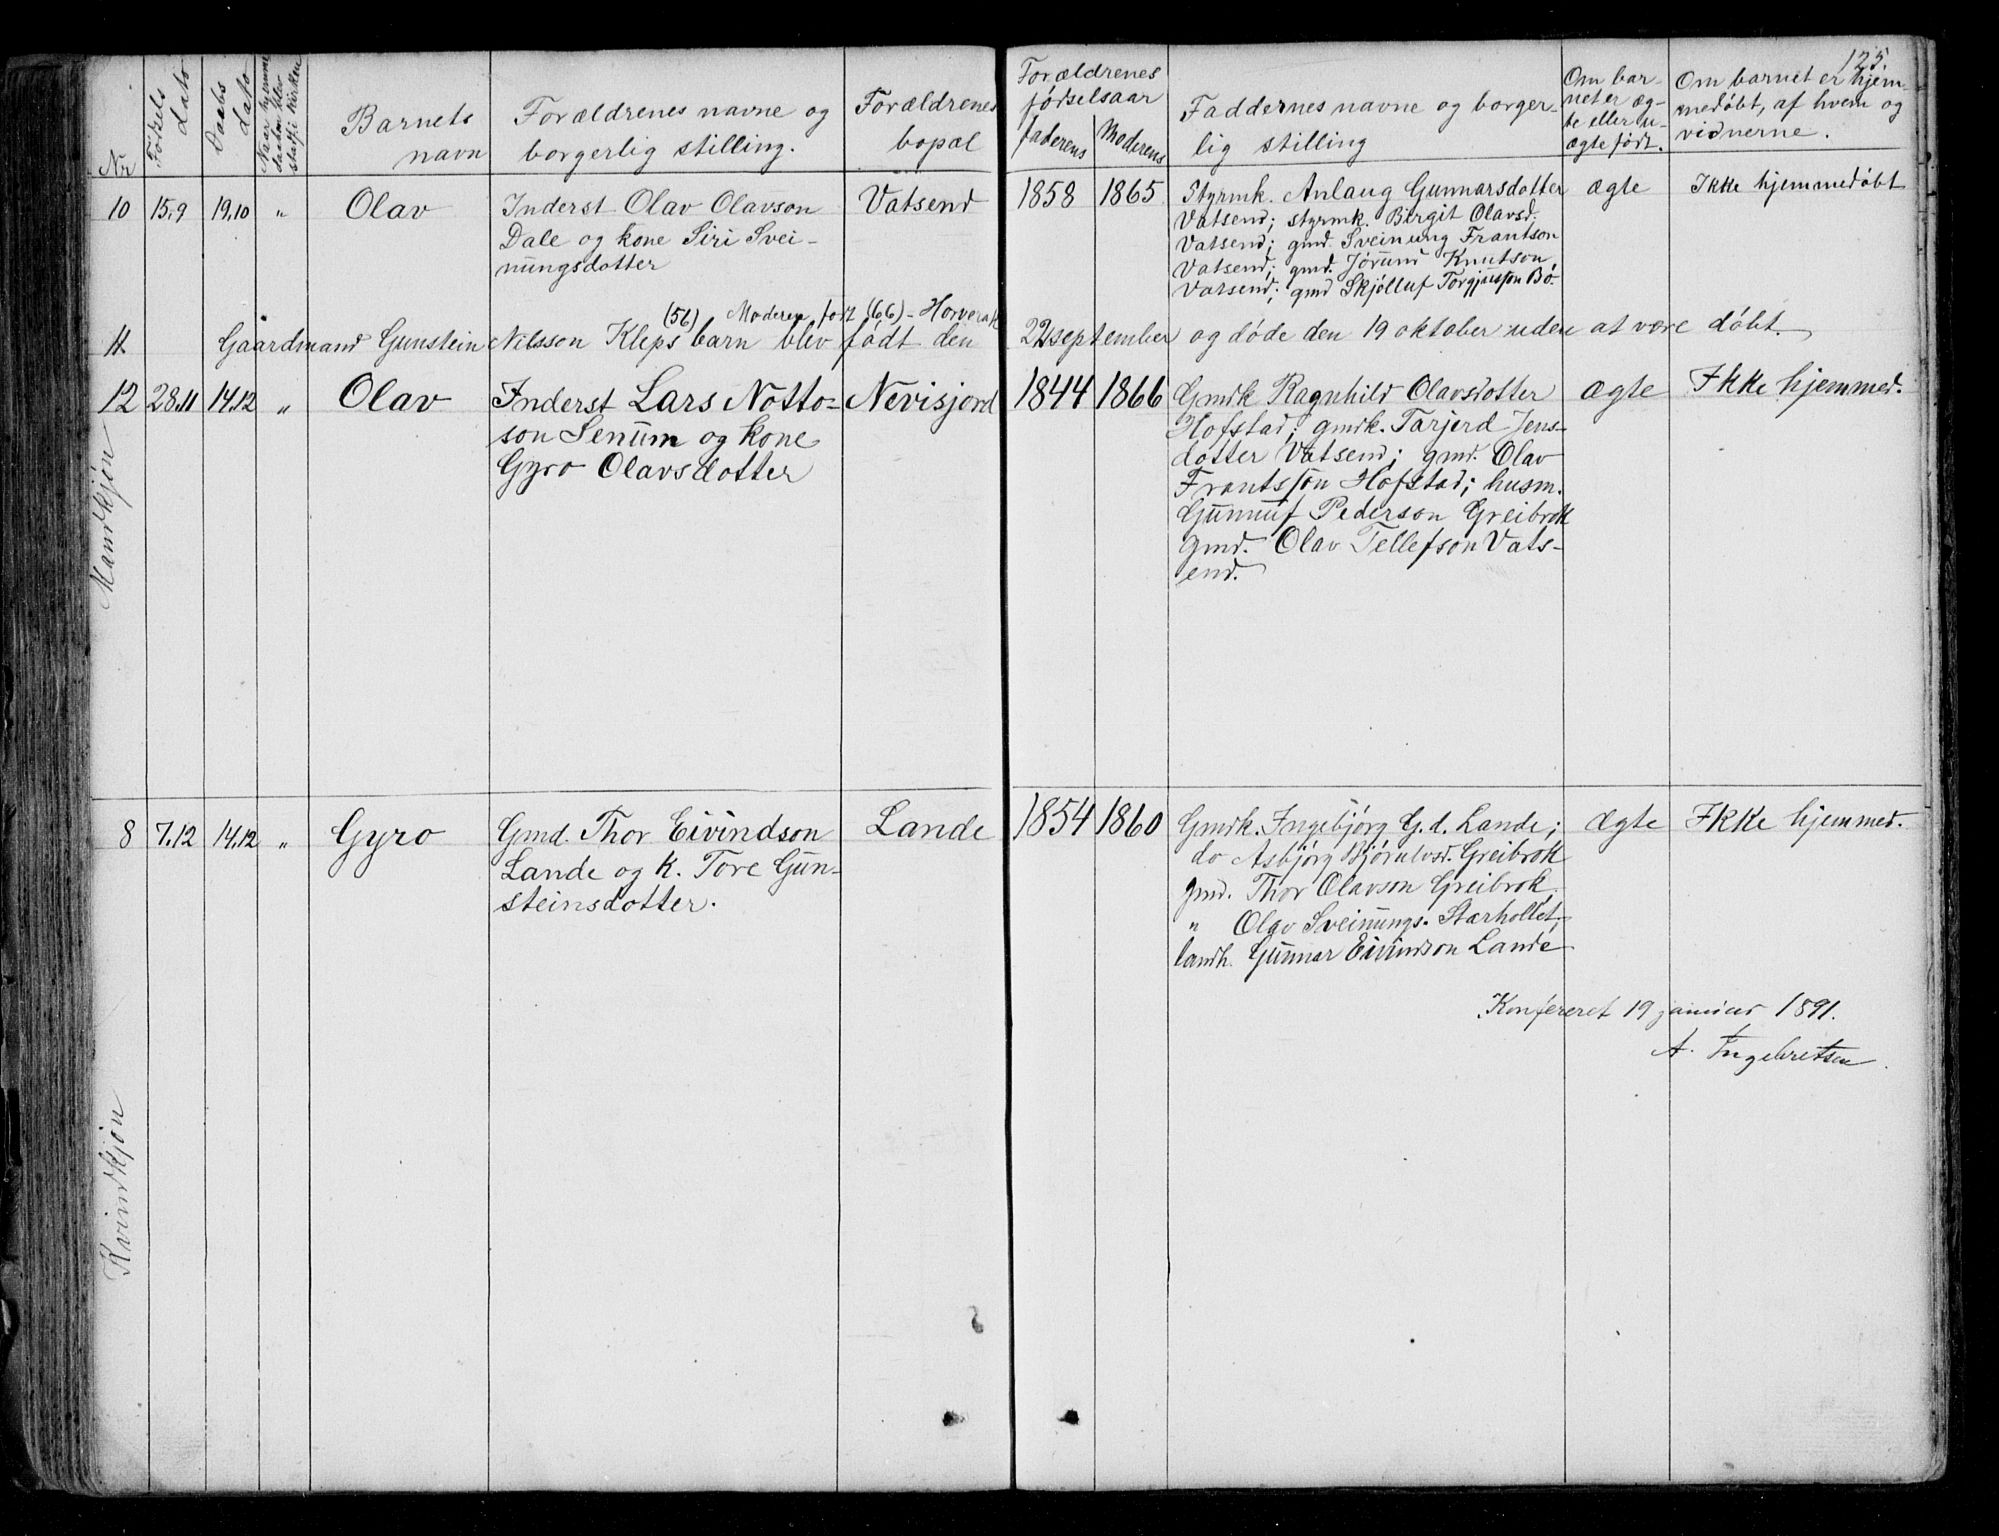 125.
Nr
Fødsels dato
Daabs dato
Naar hjemmedaaben blev stadf. i kirken
Barnets navn
Forældrenes navne og
borgerlig stilling.
Forældrenes
bopæl
Forældrenes
fødselsaar
faderens
Moderens
Faddernes navne og borger-
lig stilling
Om bar-
net er æg-
te eller u-
ægte født.
Om barnet er hjem-
medøbt, af hvem og
vidnerne.
Mandkjøn
10 15.9 19.10 „ Olav
Inderst Olav Olavson
Dale og kone Siri Svei-
nungsdotter
Vatsend
1858 1865
Styrmk. Anlaug Gunnarsdotter
Vatsend; styrmk. Birgit Olavsd.
Vatsend; gmd. Sveinung Frantson
Vatsend; gmd. Jørund Knutson,
Vatsend; gmd Skjølluf Torgjusson Bö.
ægte
Ikke hjemmedøbt
(56) Moderen født (66) - Horverak
11. Gaardmand Gunstein Nilsson Kleps barn blev født den 22 september og døde den 19 oktober uden at være døbt.
12 28.11 14.12 „ Olav
Inderst Lars Notto-
son Senum og kone
Gyro Olavsdotter
Nevisjord
1844 1866
Gmdk Ragnhild Olavsdotter
Hofstad; gmdk. Tarjerd Jens-
dotter Vatsend; gmd. Olav
Frantsson Hofstad; husm.
Gunnuf Pederson Greibrok
gmd. Olav Tellefson Vats-
end.
ægte
Ikke hjemmed.
Kvindkjøn
8 7.12 14.12 „ Gyro
Gmd. Thor Eivindson
Lande og k. Tore Gun-
steinsdotter.
Lande
1854 1860
Gmdk. Ingebjörg G.d. Lande;
do Asbjörg Bjørnlvsd. Greibrok
gmd. Thor Olavson Greibrok,
„ Olav Sveinungs. Stærhollet;
landh. Gunnar Eivindson Lande
ægte
Ikke hjemmed.
Konfereret 19 januar 1891.
A. Ingebretsen